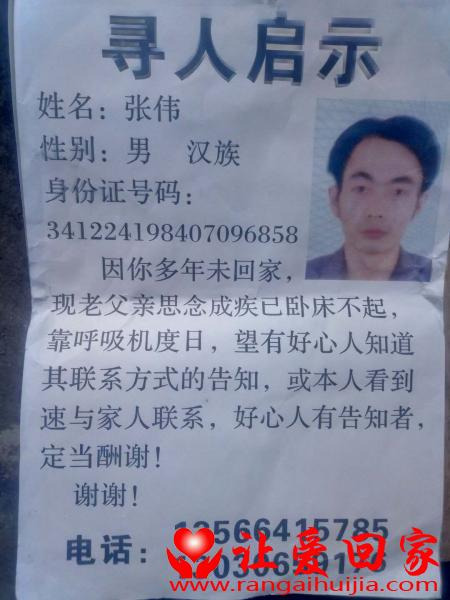 寻人启示
姓名：张伟
性别：男 汉族
身份证号码：
341224198407096858
因你多年未回家，
现老父亲思念成疾已卧床不起，
靠呼吸机度日，望有好心人知道
其联系方式的告知，或本人看到
速与家人联系，好心人有告知者，
定当酬谢！
谢谢！
电话：
13566415785
让爱回家
www.rangaihuijia.com